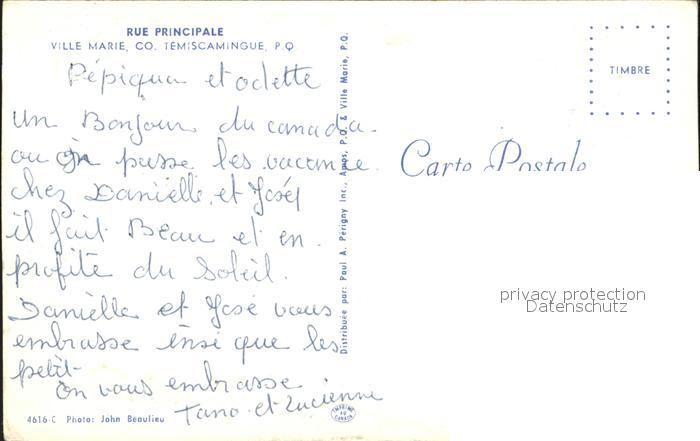 RUE PRINCIPALE
VILLE MARIE, CO. TEMISCAMINGUE, P.Q
et odette
un Bonjour du canada.
ou on passe les vacance
chez Danielle et José
il fait Beau et en
profite du Soleil.
Danielle et José vous
embrasse insi que les
petit-
on vous embrasse
Tano et Lucienne
4616-C Photo: John Beaulieu
Distribuée par: Paul A. Périgny Inc., Amos, P.Q. & Ville Marie, P.Q.
IMPRIMÉ AU CANADA
TIMBRE
Carte Postale
privacy protection
Datenschutz